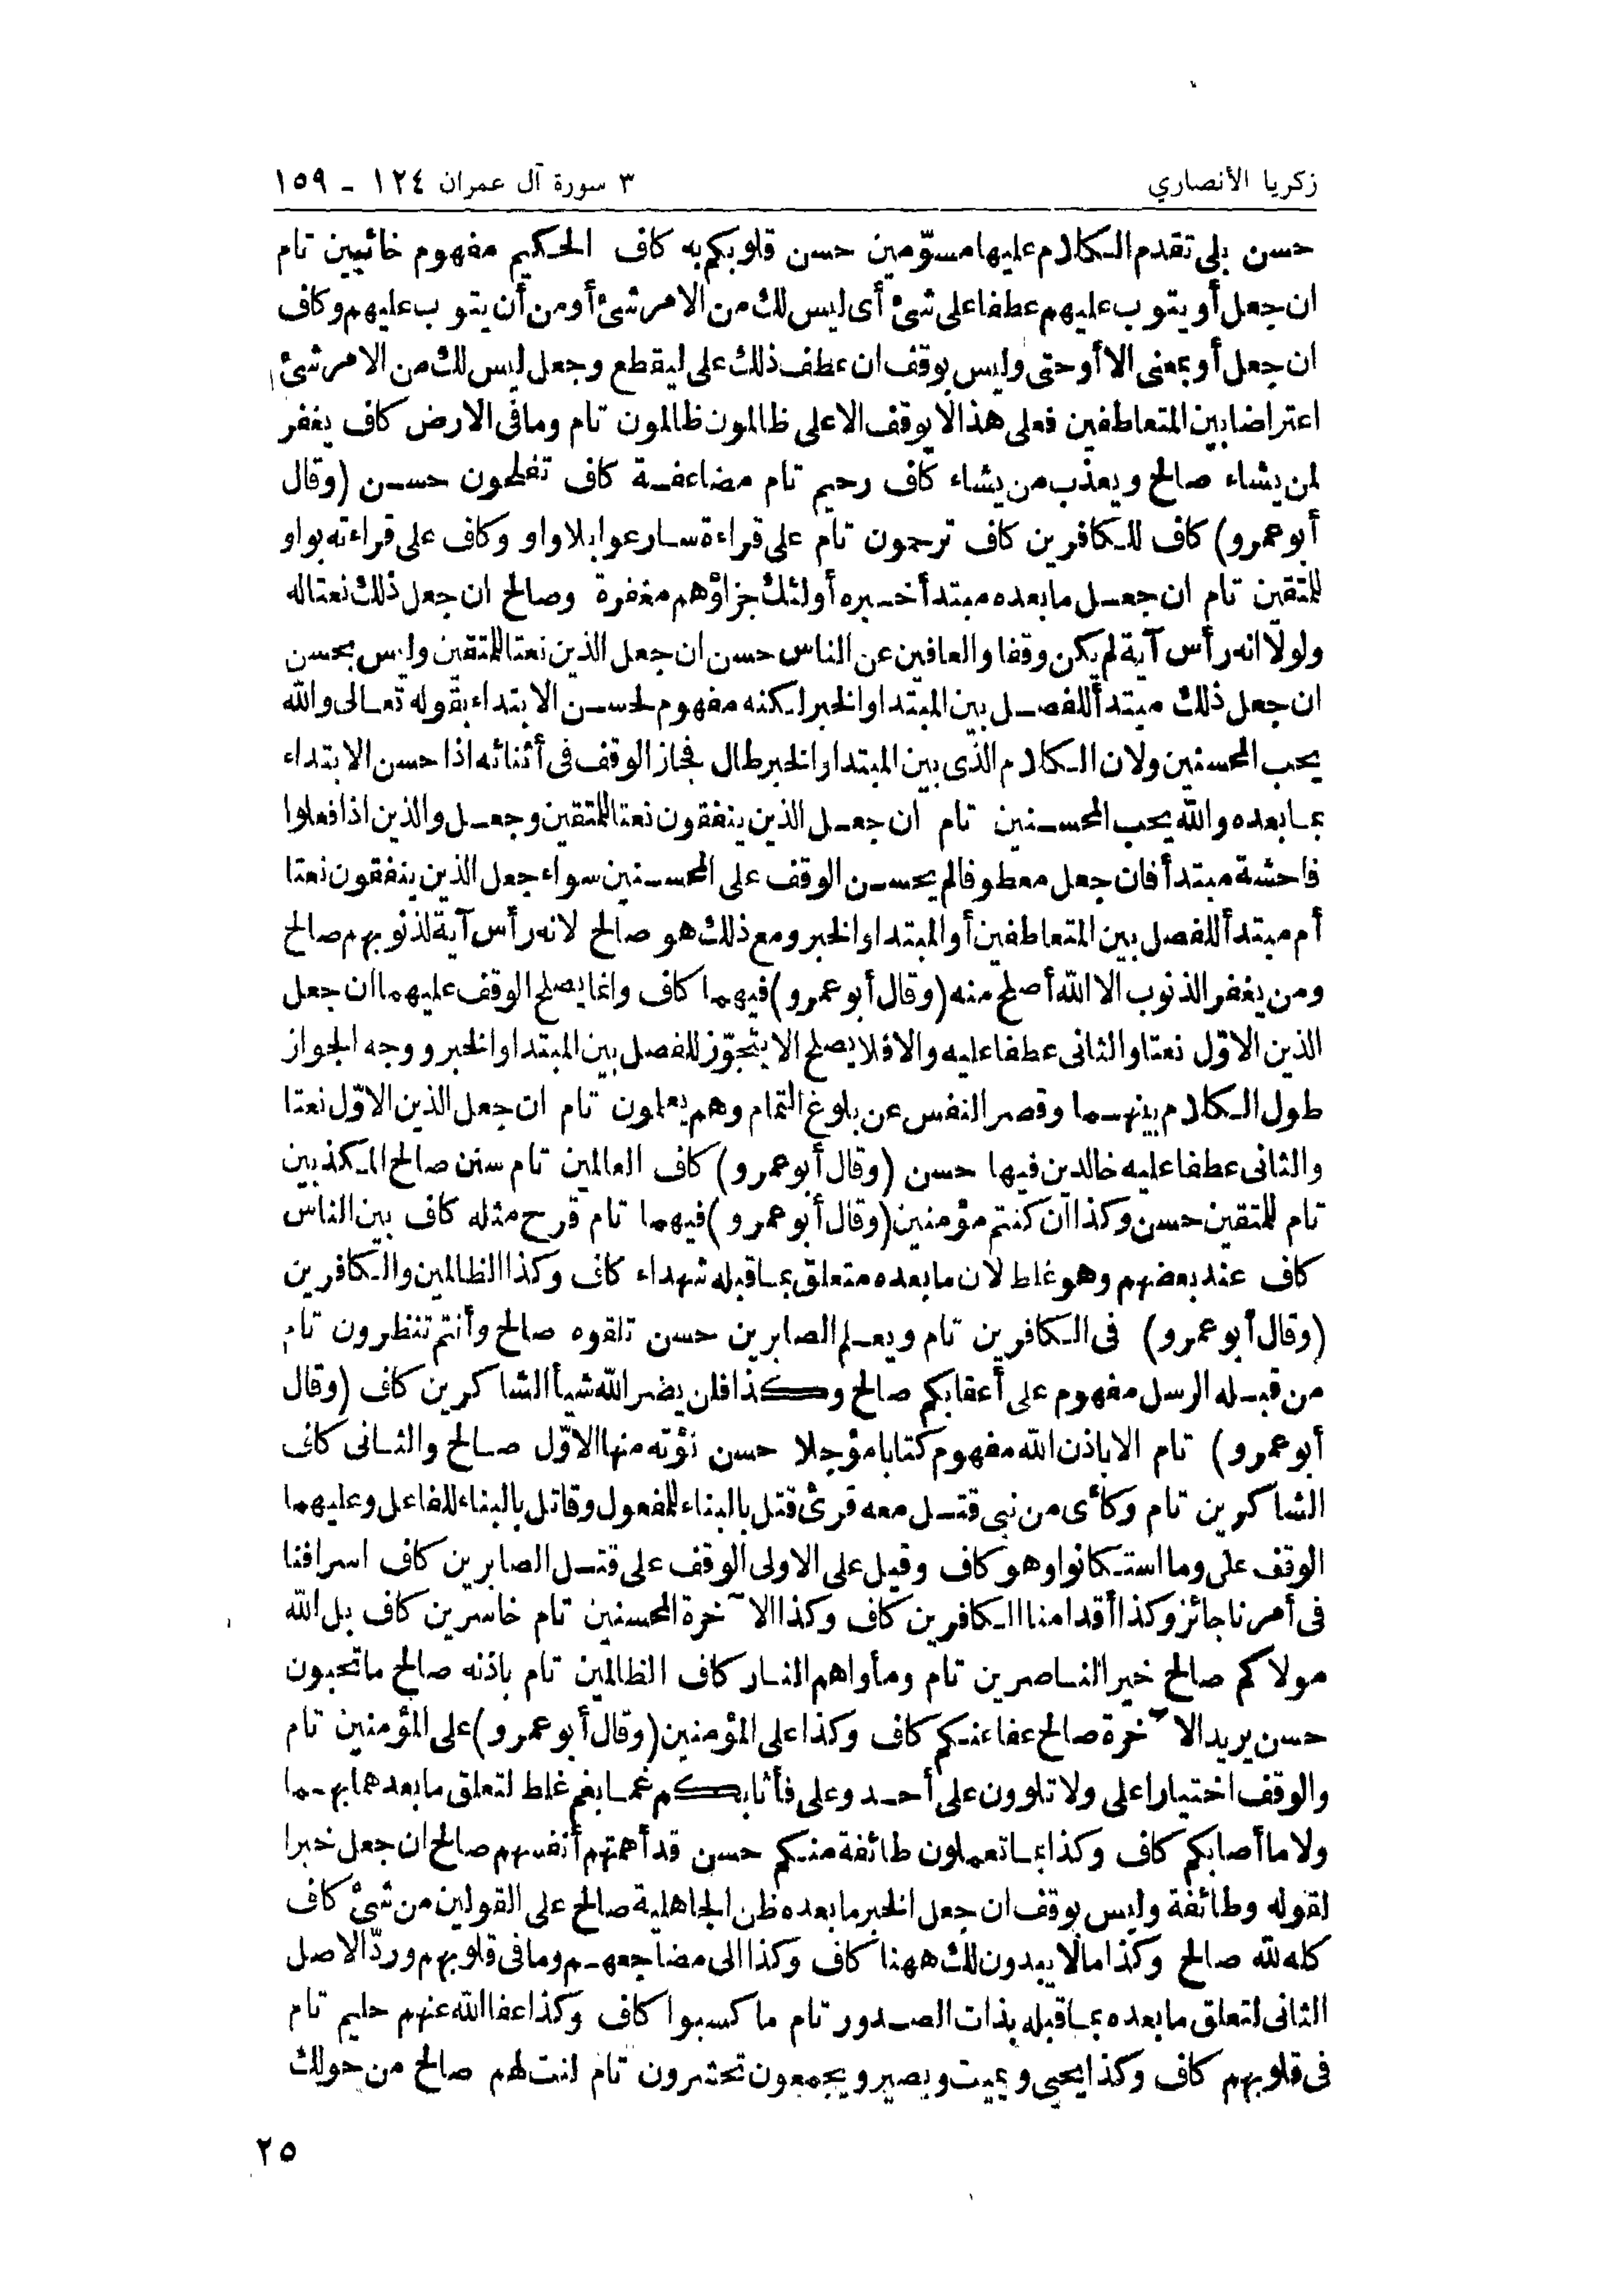 زكريا الأنصاري
٣ سورة آل عمران ١٢٤ - ١٥٩
حسن بلى تقدم الكلام عليها مسوّمين حسن قلوبكم به كاف الحكيم مفهوم خائبين تام
ان جعل أو يتوب عليهم عطفا على شئ أى ليس لك من الامر شئ أو من أن يتوب عليهم وكاف
ان جعل أو بمعنى الا أو حتى وليس بوقف ان عطف ذلك على ليقطع وجعل ليس لك من الامر شئ
اعتراضا بين المتعاطفين فعلى هذا لا يوقف الا على ظالمون ظالمون تام وما فى الارض كاف يغفر
لمن يشاء صالح ويعذب من يشاء كاف رحيم تام مضاعفة كاف تفلحون حسن (وقال
أبو عمرو) كاف للكافرين كاف ترحمون تام على قراءة سارعوا بلا واو وكاف على قراءته بواو
للمتقين تام ان جعل ما بعده مبتدأ خبره أولئك جزاؤهم مغفرة وصالح ان جعل ذلك نعتا له
ولولا انه رأس آية لم يكن وقفا والعافين عن الناس حسن ان جعل الذين نعتا للمتقين وليس بحسن
ان جعل ذلك مبتدأ للفصل بين المبتدا والخبر لكنه مفهوم لحسن الابتداء بقوله تعالى والله
يحب المحسنين ولان الكلام الذى بين المبتدا والخبر طال فجاز الوقف فى أثنائه اذا حسن الابتداء
بما بعده والله يحب المحسنين تام ان جعل الذين ينفقون نعتا للمتقين وجعل والذين اذا فعلوا
فاحشة مبتدأ فان جعل معطوفا لم يحسن الوقف على المحسنين سواء جعل الذين ينفقون نعتا
أم مبتدأ للفصل بين المتعاطفين أو المبتدا والخبر ومع ذلك هو صالح لانه رأس آية لذنوبهم صالح
ومن يغفر الذنوب الا الله أصلح منه (وقال أبو عمرو) فيهما كاف وانما يصلح الوقف عليهما ان جعل
الذين الاوّل نعتا والثانى عطفا عليه والا فلا يصلح الا بتجوّز للفصل بين المبتدا والخبر ووجه الجواز
طول الكلام بينهما وقصر النفس عن بلوغ التمام وهم يعلمون تام ان جعل الذين الاوّل نعتا
والثانى عطفا عليه خالدين فيها حسن (وقال أبو عمرو) كاف العالمين تام سنن صالح المكذبين
تام للمتقين حسن وكذا ان كنتم مؤمنين (وقال أبو عمرو) فيهما تام قرح مثله كاف بين الناس
كاف عند بعضهم وهو غلط لان ما بعده متعلق بما قبله شهداء كاف وكذا الظالمين والكافرين
(وقال أبو عمرو) فى الكافرين تام ويعلم الصابرين حسن تلقوه صالح وأنتم تنظرون تام
من قبله الرسل مفهوم على أعقابكم صالح وكذا فلن يضر الله شيأ الشاكرين كاف (وقال
أبو عمرو) تام الا باذن الله مفهوم كتابا مؤجلا حسن نؤته منها الاوّل صالح والثانى كاف
الشاكرين تام وكأى من نبى قتل معه قرئ قتل بالبناء للمفعول وقاتل بالبناء للفاعل وعليهما
الوقف على وما استكانوا وهو كاف وقيل على الاولى الوقف على قتل الصابرين كاف اسرافنا
فى أمرنا جائز وكذا أقدامنا الكافرين كاف وكذا الآخرة المحسنين تام خاسرين كاف بل الله
مولاكم صالح خير الناصرين تام ومأواهم النار كاف الظالمين تام باذنه صالح ما تحبون
حسن يريد الآخرة صالح عفا عنكم كاف وكذا على المؤمنين (وقال أبو عمرو) على المؤمنين تام
والوقف اختيارا على ولا تلوون على أحد وعلى فأثابكم غما بغم غلط لتعلق ما بعدهما بهما
ولا ما أصابكم كاف وكذا بما تعملون طائفة منكم حسن قد أهمتهم أنفسهم صالح ان جعل خبرا
لقوله وطائفة وليس بوقف ان جعل الخبر ما بعده ظن الجاهلية صالح على القولين من شئ كاف
كله لله صالح وكذا ما لا يبدون لك ههنا كاف وكذا الى مضاجعهم وما فى قلوبهم وردّ الاصل
الثانى لتعلق ما بعده بما قبله بذات الصدور تام ما كسبوا كاف وكذا عفا الله عنهم حليم تام
فى قلوبهم كاف وكذا يحيى ويميت وبصير ويجمعون تحشرون تام لنت لهم صالح من حولك
٢٥